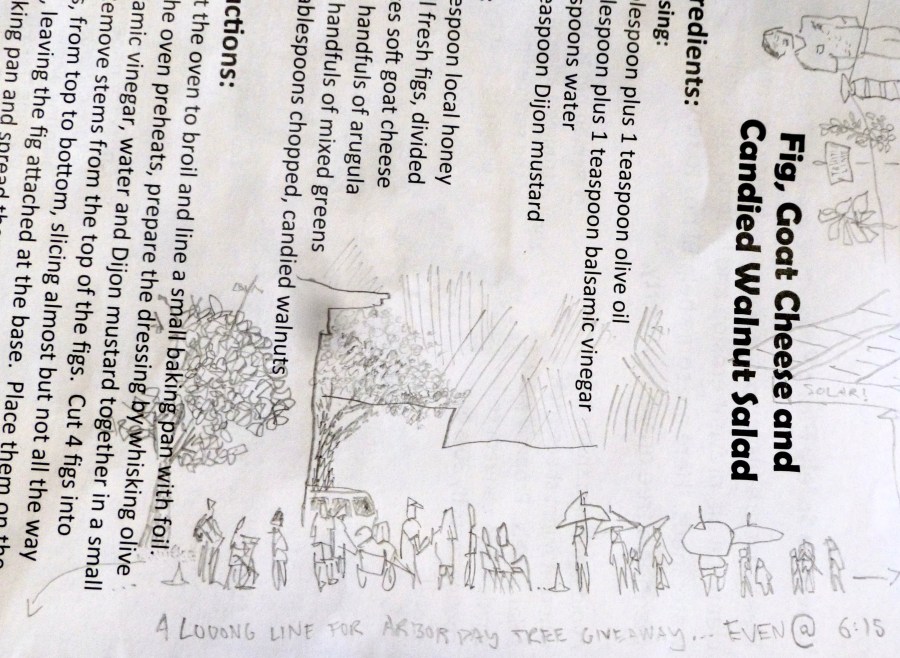 Fig, Goat Cheese and
Candied Walnut Salad
redients:
sing:
lespoon plus 1 teaspoon olive oil
lespoon plus 1 teaspoon balsamic vinegar
spoons water
easpoon Dijon mustard
:
espoon local honey
l fresh figs, divided
es soft goat cheese
handfuls of arugula
handfuls of mixed greens
ablespoons chopped, candied walnuts
ctions:
t the oven to broil and line a small baking pan with foil
he oven preheats, prepare the dressing by whisking olive
amic vinegar, water and Dijon mustard together in a small
emove stems from the top of the figs. Cut 4 figs into
s, from top to bottom, slicing almost but not all the way
, leaving the fig attached at the base. Place them on the
king pan and spread the
SOLAR!
A LOOONG LINE FOR ARBOR DAY TREE GIVEAWAY... EVEN @ 6:15